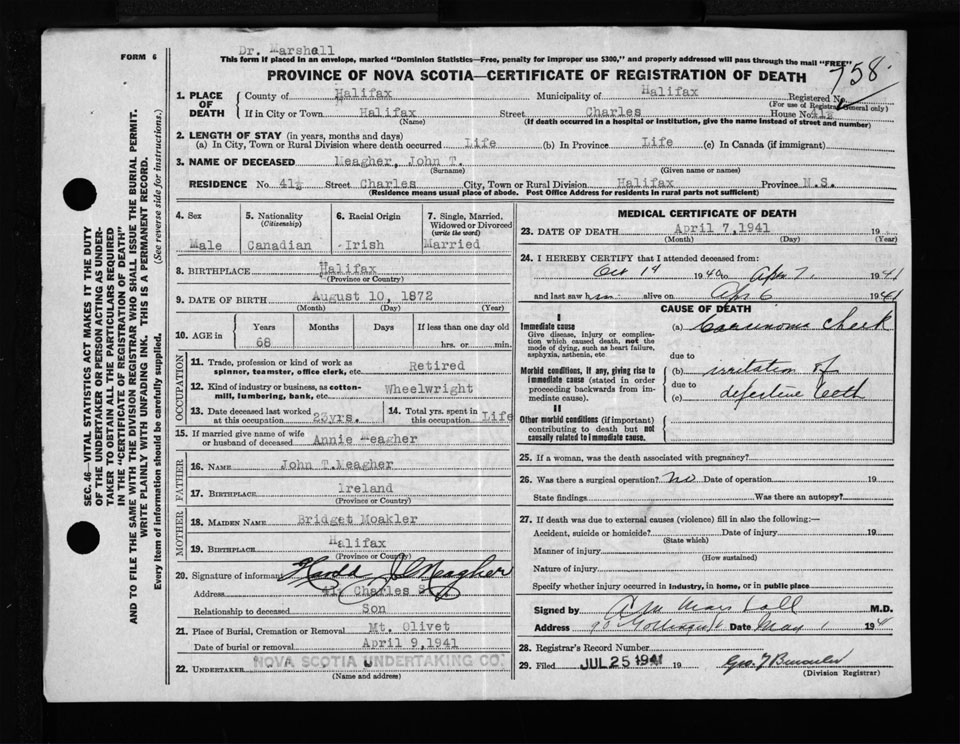 Dr. Marshall
FORM 6
This form if placed in an envelope, marked "Dominion Statistics—Free, penalty for improper use $300," and properly addressed will pass through the mail "FREE"
PROVINCE OF NOVA SCOTIA—CERTIFICATE OF REGISTRATION OF DEATH
758
1. PLACE OF DEATH
County of Halifax Municipality of Halifax Registered No.
(For use of Registrar General only)
If in City or Town Halifax Street Charles House No. 41½
(Name) (If death occurred in a hospital or institution, give the name instead of street and number)
2. LENGTH OF STAY (in years, months and days)
(a) In City, Town or Rural Division where death occurred Life (b) In Province Life (c) In Canada (if immigrant)
3. NAME OF DECEASED Meagher, John T.
(Surname) (Given name or names)
RESIDENCE No. 41½ Street Charles City, Town or Rural Division Halifax Province N.S.
(Residence means usual place of abode. Post Office Address for residents in rural parts not sufficient)
4. Sex 5. Nationality (Citizenship) 6. Racial Origin 7. Single, Married, Widowed or Divorced (write the word)
Male Canadian Irish Married
8. BIRTHPLACE Halifax
(Province or Country)
9. DATE OF BIRTH August 10, 1872
(Month) (Day) (Year)
10. AGE in Years Months Days If less than one day old
68 hrs. or min.
OCCUPATION
11. Trade, profession or kind of work as spinner, teamster, office clerk, etc. Retired
12. Kind of industry or business, as cotton-mill, lumbering, bank, etc. Wheelwright
13. Date deceased last worked at this occupation 23yrs. 14. Total yrs. spent in this occupation Life
15. If married give name of wife or husband of deceased Annie Meagher
FATHER
16. NAME John T.Meagher
17. BIRTHPLACE Ireland
(Province or Country)
MOTHER
18. MAIDEN NAME Bridget Moakler
19. BIRTHPLACE Halifax
(Province or Country)
20. Signature of informant J Meagher
Address 41½ Charles St
Relationship to deceased Son
21. Place of Burial, Cremation or Removal Mt. Olivet
Date of burial or removal April 9,1941
22. UNDERTAKER NOVA SCOTIA UNDERTAKING CO.
(Name and address)
MEDICAL CERTIFICATE OF DEATH
23. DATE OF DEATH April 7,1941 19
(Month) (Day) (Year)
24. I HEREBY CERTIFY that I attended deceased from:
Oct 14 1940 to Apr 7, 1941
and last saw him alive on Apr 6 1941
CAUSE OF DEATH
I
Immediate cause
Give disease, injury or complication which caused death, not the mode of dying, such as heart failure, asphyxia, asthenia, etc
(a) Carcinoma cheek
due to
Morbid conditions, if any, giving rise to immediate cause (stated in order proceeding backwards from immediate cause).
(b) irritation of
due to
(c) defective teeth
II
Other morbid conditions (if important) contributing to death but not causally related to immediate cause.
25. If a woman, was the death associated with pregnancy?
26. Was there a surgical operation? no Date of operation 19
State findings Was there an autopsy?
27. If death was due to external causes (violence) fill in also the following:—
Accident, suicide or homicide? Date of injury 19
(State which)
Manner of injury
(How sustained)
Nature of injury
Specify whether injury occurred in industry, in home, or in public place
Signed by Marshall M.D.
Address Date May 1 1941
28. Registrar's Record Number
29. Filed JUL 25 1941 19 Geo. F
(Division Registrar)
SEC. 46—VITAL STATISTICS ACT MAKES IT THE DUTY
OF THE UNDERTAKER OR PERSON ACTING AS UNDER-
TAKER TO OBTAIN ALL THE PARTICULARS REQUIRED
IN THE "CERTIFICATE OF REGISTRATION OF DEATH"
AND TO FILE THE SAME WITH THE DIVISION REGISTRAR WHO SHALL ISSUE THE BURIAL PERMIT.
WRITE PLAINLY WITH UNFADING INK. THIS IS A PERMANENT RECORD.
Every item of information should be carefully supplied. (See reverse side for instructions.)